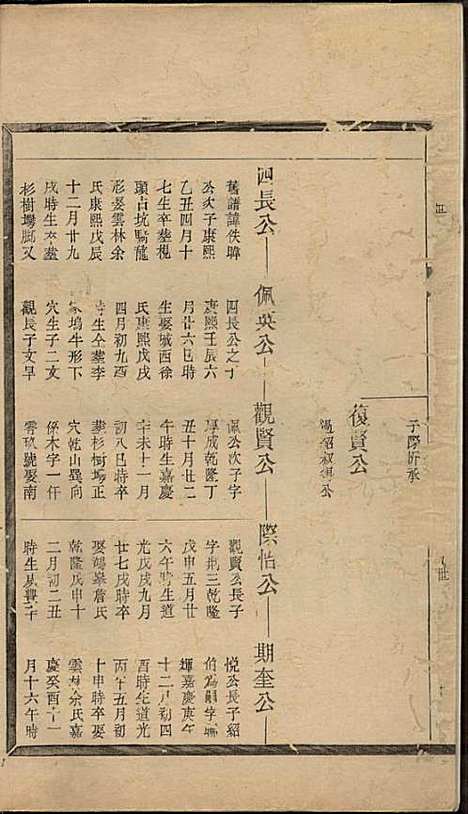 子際昕承
復賢公
四長公
佩英公
觀賢公
際怡公
期奎公
舊譜諱佚暐
公次子康熙
乙丑四月十
七生卒葬槐
頭古坑騎龍
形娶雲林余
氏康熙戊辰
十二月廿九
戌時生卒葬
杉樹塢腳又
四長公之子
康熙壬辰六
月廿六巳時
生娶城西徐
氏康熙戊戌
四月初九酉
時生仝葬李
家塢牛形下
穴生子二文
觀長子文早
佩公次子字
學成乾隆丁
丑十月廿二
午時生嘉慶
辛未十一月
初八巳時卒
葬杉樹塢正
穴乾山巽向
係木字一仟
零玖號娶南
觀賢公長子
字荊三乾隆
戊申五月廿
六午時生道
光戊戌九月
廿七戌時卒
娶錫皋詹氏
乾隆戊申十
二月初二丑
時生吳豐子
悅公長子紹
輝嘉慶庚午
十二月初四
酉時生道光
丙午五月初
十申時卒娶
雲林余氏嘉
慶癸酉十一
月十六午時